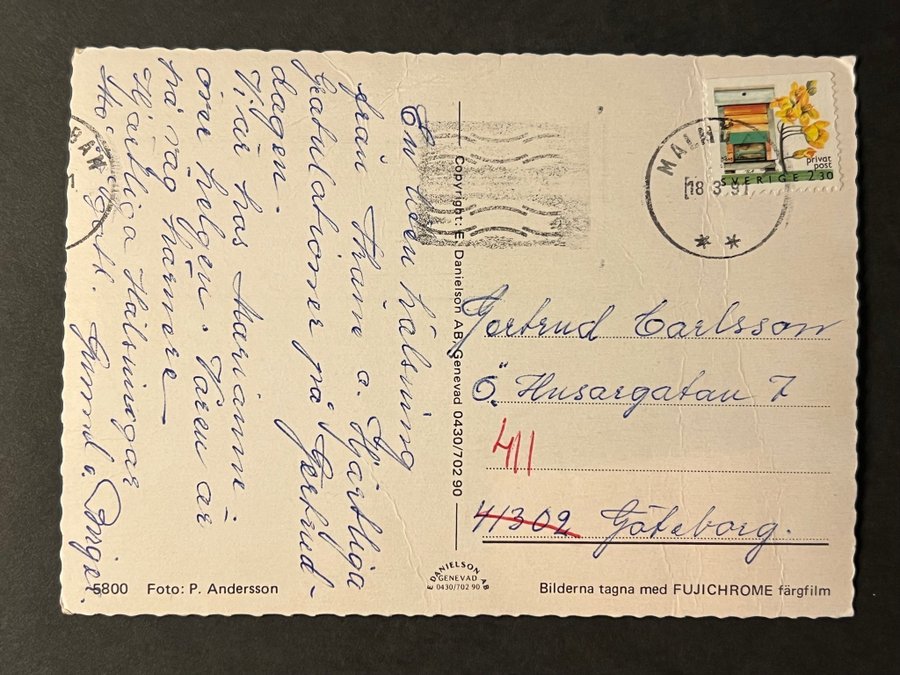 En liten hälsning
från Trane o. Hjärtliga
Gratulationer på Gertrud-
dagen.
Vi är hos Marianne
över helgen. Våren är
på väg härnere
Hjärtliga Hälsningar
Gunnel o Börje.
privat
post
SVERIGE 2.30
18 3.91
Copyright: E Danielson AB, Genevad 0430/702 90
Gertrud Carlsson
Ö. Husargatan 7
411
41302 Göteborg.
5800 Foto: P. Andersson
E DANIELSON AB
GENEVAD
0430/702 90
Bilderna tagna med FUJICHROME färgfilm